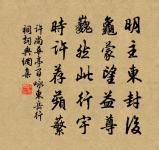 明主東封後
龜蒙望益尊
巍然此行宇
時許荐蘋蘩
許尚華亭百詠東岳行
祠詞典網集